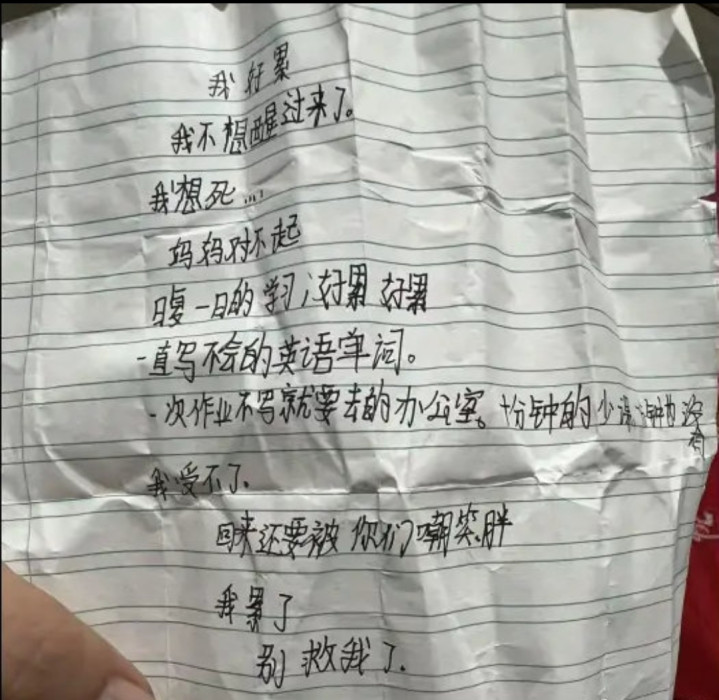 我好累
我不想醒过来了。
我想死...
妈妈对不起
日复一日的学习,好累 好累
一直写不会的英语单词。
一次作业不写就要去的办公室。十分钟的少课分钟的没有
我受不了.
回来还要被你们嘲笑胖
我累了
别救我了.